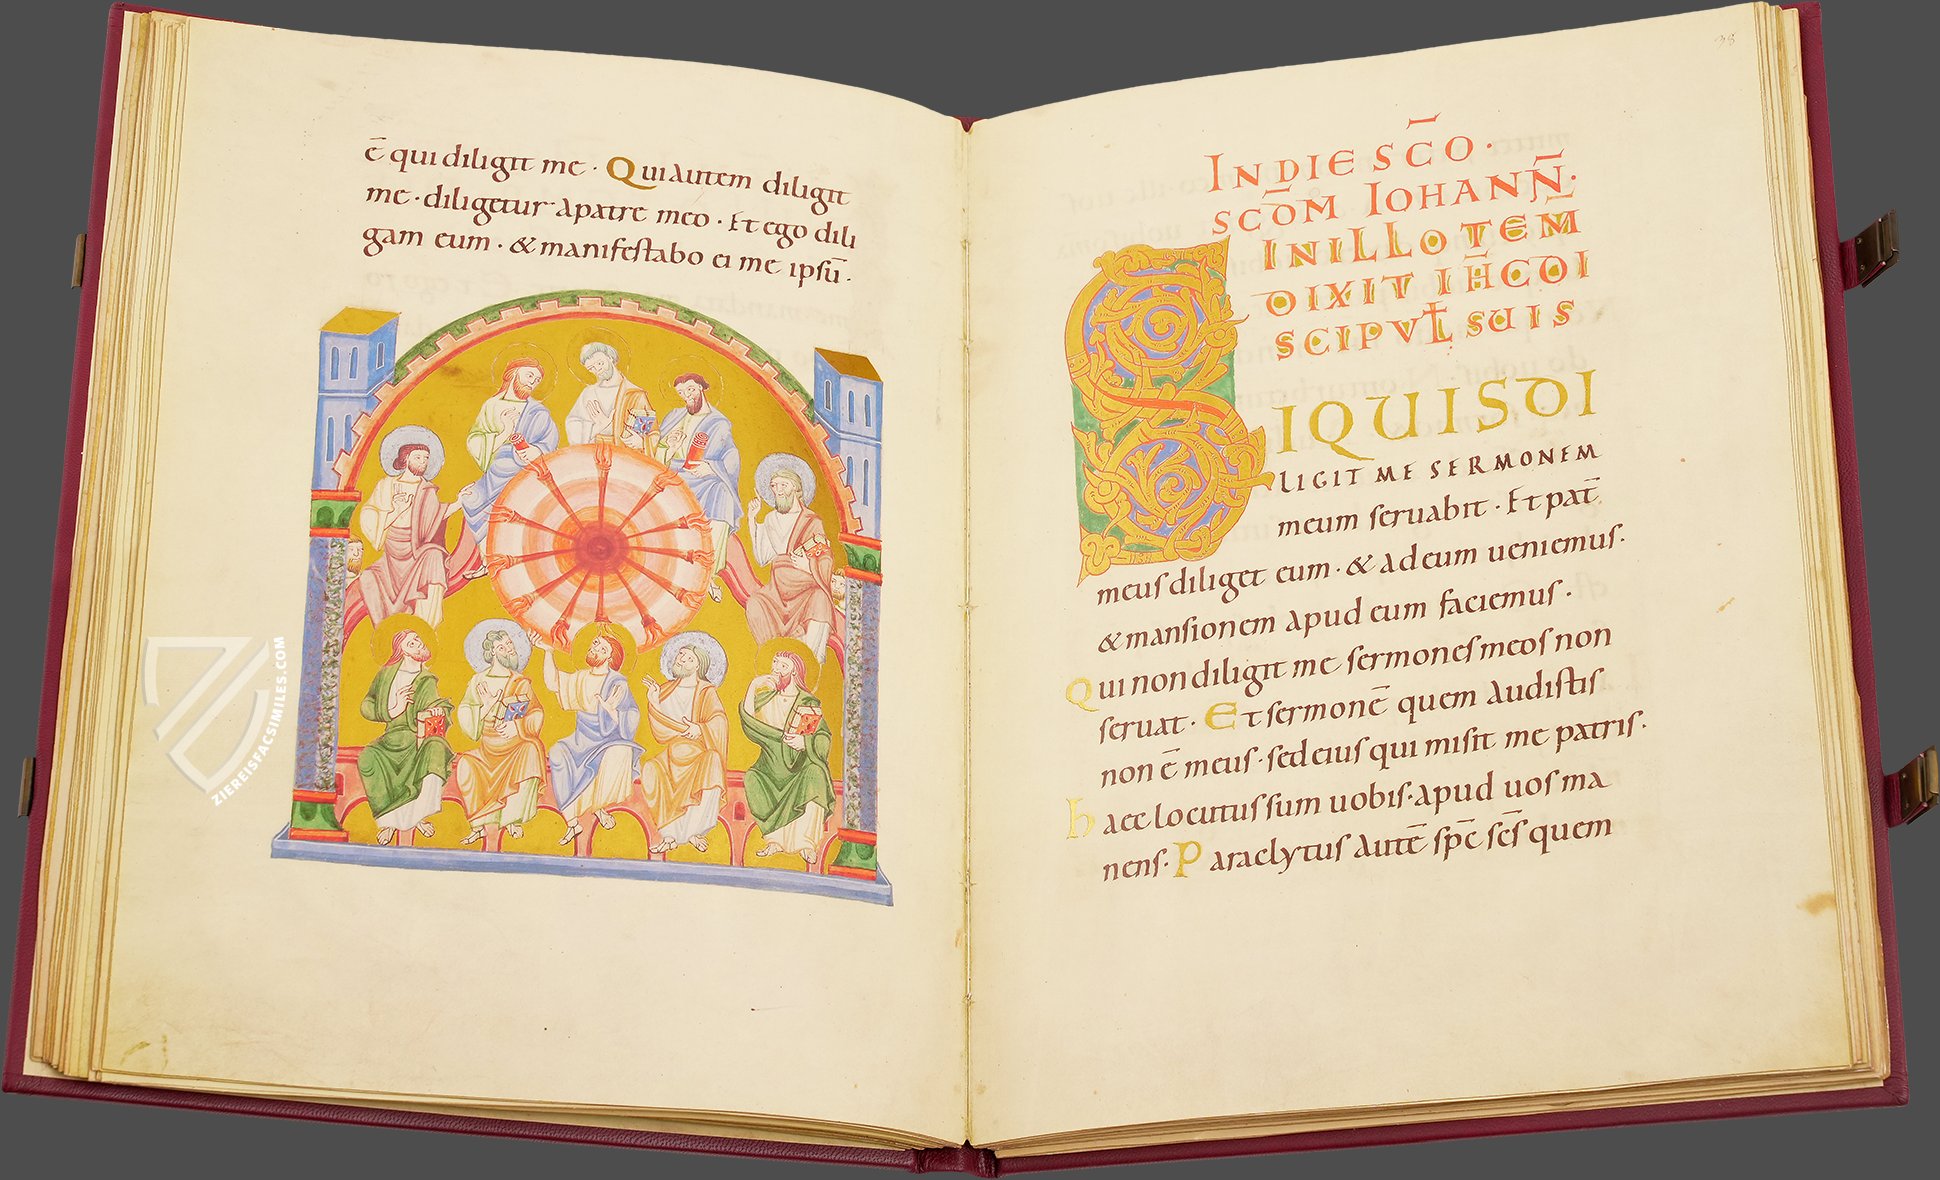 ē qui diligit me · Qui autem diligit
me · diligetur a patre meo · Et ego dili
gam eum · & manifestabo ei me ipsū ·
ZIEREISFACSIMILES.COM
38
IN DIE SC̄O ·
SCD̄M IOHANN̄ ·
IN ILLO TEM̄
DIXIT IH̄C DI
SCIPVL̵ SUIS
SIQUIS DI
LIGIT ME SERMONEM
meum seruabit · Et pat̄
meus diliget eum · & ad eum ueniemus ·
& mansionem apud eum faciemus ·
Qui non diligit me sermones meos non
seruat · Et sermonē quem audistis
non ē meus · sed eius qui misit me patris ·
haec locutus sum uobis · apud uos ma
nens · Paraclytus autē sp̄c sc̄s quem